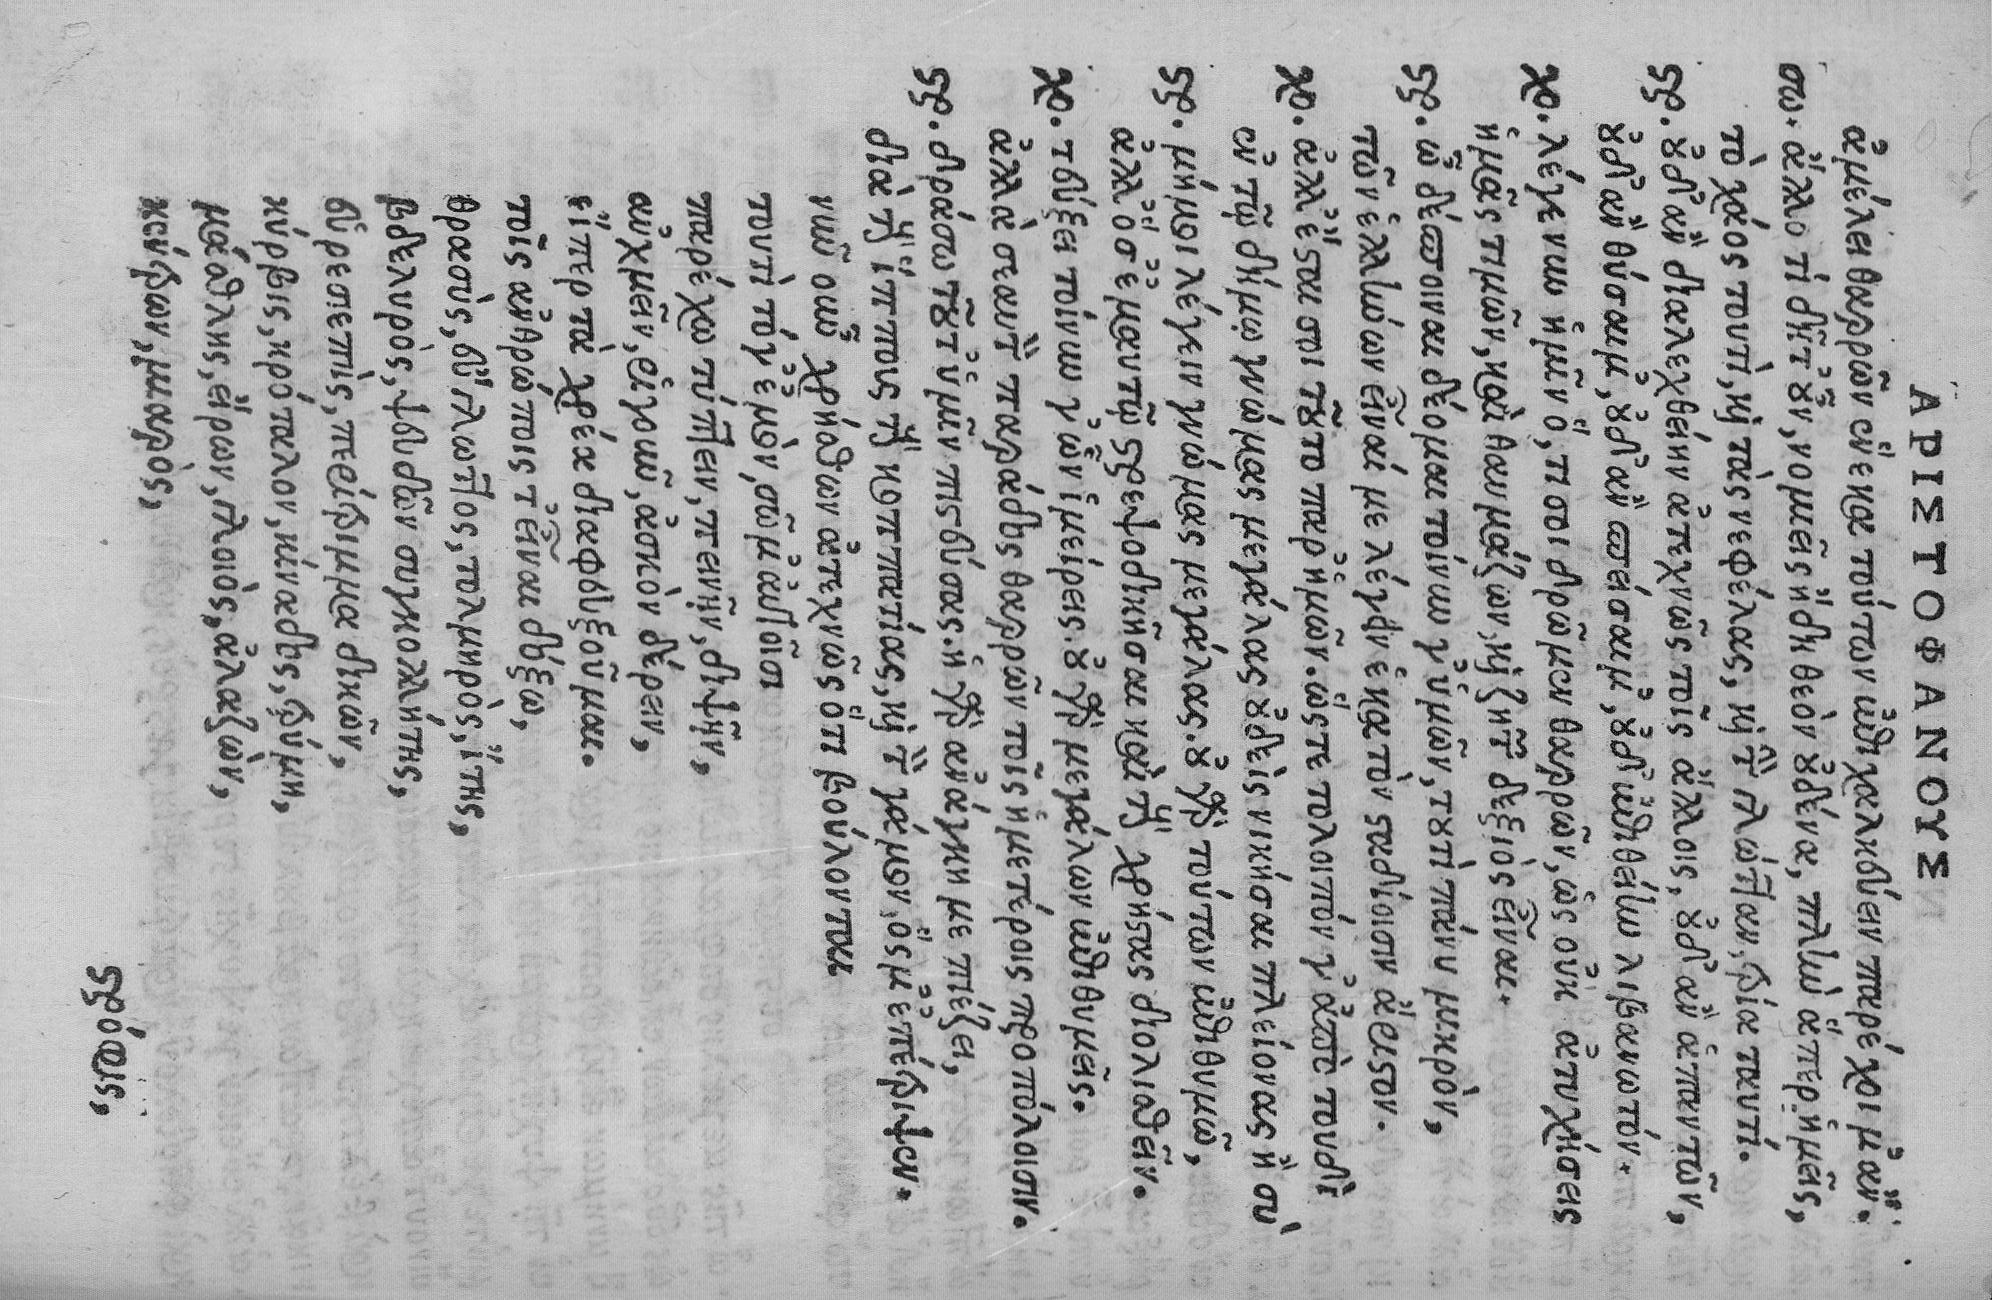 ΑΡΙΣΤΟΦΑΝΟΥΣ
ἀμέλει θαρρῶν εἵνεκα τούτων ἐπιχαλκεύειν παρέχοιμ᾽ ἄν.
σω. ἄλλο τί δῆτ᾽ οὖν, νομιεῖς ἤδη θεὸν οὐδένα, πλὴν ἅπερ ἡμεῖς,
τὸ χάος τουτὶ, καὶ τὰς νεφέλας, καὶ τὴν γλῶτταν, τρία ταυτί.
στ. οὐδ᾽ ἂν διαλεχθείην ἀτεχνῶς τοῖς ἄλλοις, οὐδ᾽ ἂν ἀπαντῶν,
οὐδ᾽ ἂν θύσαιμ᾽, οὐδ᾽ ἂν σπείσαιμ᾽, οὐδ᾽ ἐπιθείην λιβανωτόν.
χ. λέγε νυν ἡμῖν ὅ, τι σοι δρῶμεν θαρρῶν, ὡς οὐκ ἀτυχήσεις
ἡμᾶς τιμῶν, καὶ θαυμάζων, καὶ ζητῶν δεξιὸς εἶναι.
στ. ὦ δέσποιναι δέομαι τοίνυν γ᾽ ὑμῶν, τουτὶ πάνυ μικρὸν,
τῶν ἑλλήνων εἶναί με λέγειν ἑκατὸν σταδίοισιν ἄριστον.
χ. ἀλλ᾽ ἔσται σοι τοῦτο παρ᾽ ἡμῶν. ὥστε τολοιπόν γ᾽ ἀπὸ τουδὶ
ἐν τῷ δήμῳ γνώμας μεγάλας οὐδεὶς νικήσαι πλείονας ἢ σὺ
στ. μήμοι λέγειν γνώμας μεγάλας. οὐ γὰρ τούτων ἐπιθυμῶ,
ἀλλ᾽ ὅσ᾽ ἐμαυτῷ στρεψοδικῆσαι καὶ τοὺς χρήστας διολισθεῖν.
χ. τεύξει τοίνυν γ᾽ ὧν ἱμείρεις. οὐ γὰρ μεγάλων ἐπιθυμεῖς.
ἀλλὰ σεαυτὸν παράδος θαρρῶν τοῖς ἡμετέροις προπόλοισιν.
στ. δράσω τοῦτ᾽ ὑμῖν πιστεύσας. ἡ γὰρ ἀνάγκη με πιέζει,
διὰ τοὺς ἵππους τοὺς κοππατίας, καὶ τὸν γάμον, ὅς μ᾽ ἐπέτριψεν.
νῦν οὖν χρήσθων ἀτεχνῶς ὅτι βούλονται
τουτὶ τόγ᾽ ἐμὸν, σῶμ᾽ αὐτοῖσι
παρέχω τύπτειν, πεινῆν, διψῆν,
αὐχμεῖν, ῥιγοῦν, ἀσκὸν δέρειν,
εἴπερ τὰ χρέα διαφευξοῦμαι.
τοῖς ἀνθρώποις τ᾽ εἶναι δόξω,
θρασὺς, εὔγλωττος, τολμηρὸς, ἴτης,
βδελυρὸς, ψευδῶν συγκολλήτης,
εὑρεσιεπὴς, περίτριμμα δικῶν,
κύρβις, κρόταλον, κίναδος, τρύμη,
μάσθλης, εἴρων, γλοιὸς, ἀλαζὼν,
κέντρων, μιαρὸς,
στρόφις,